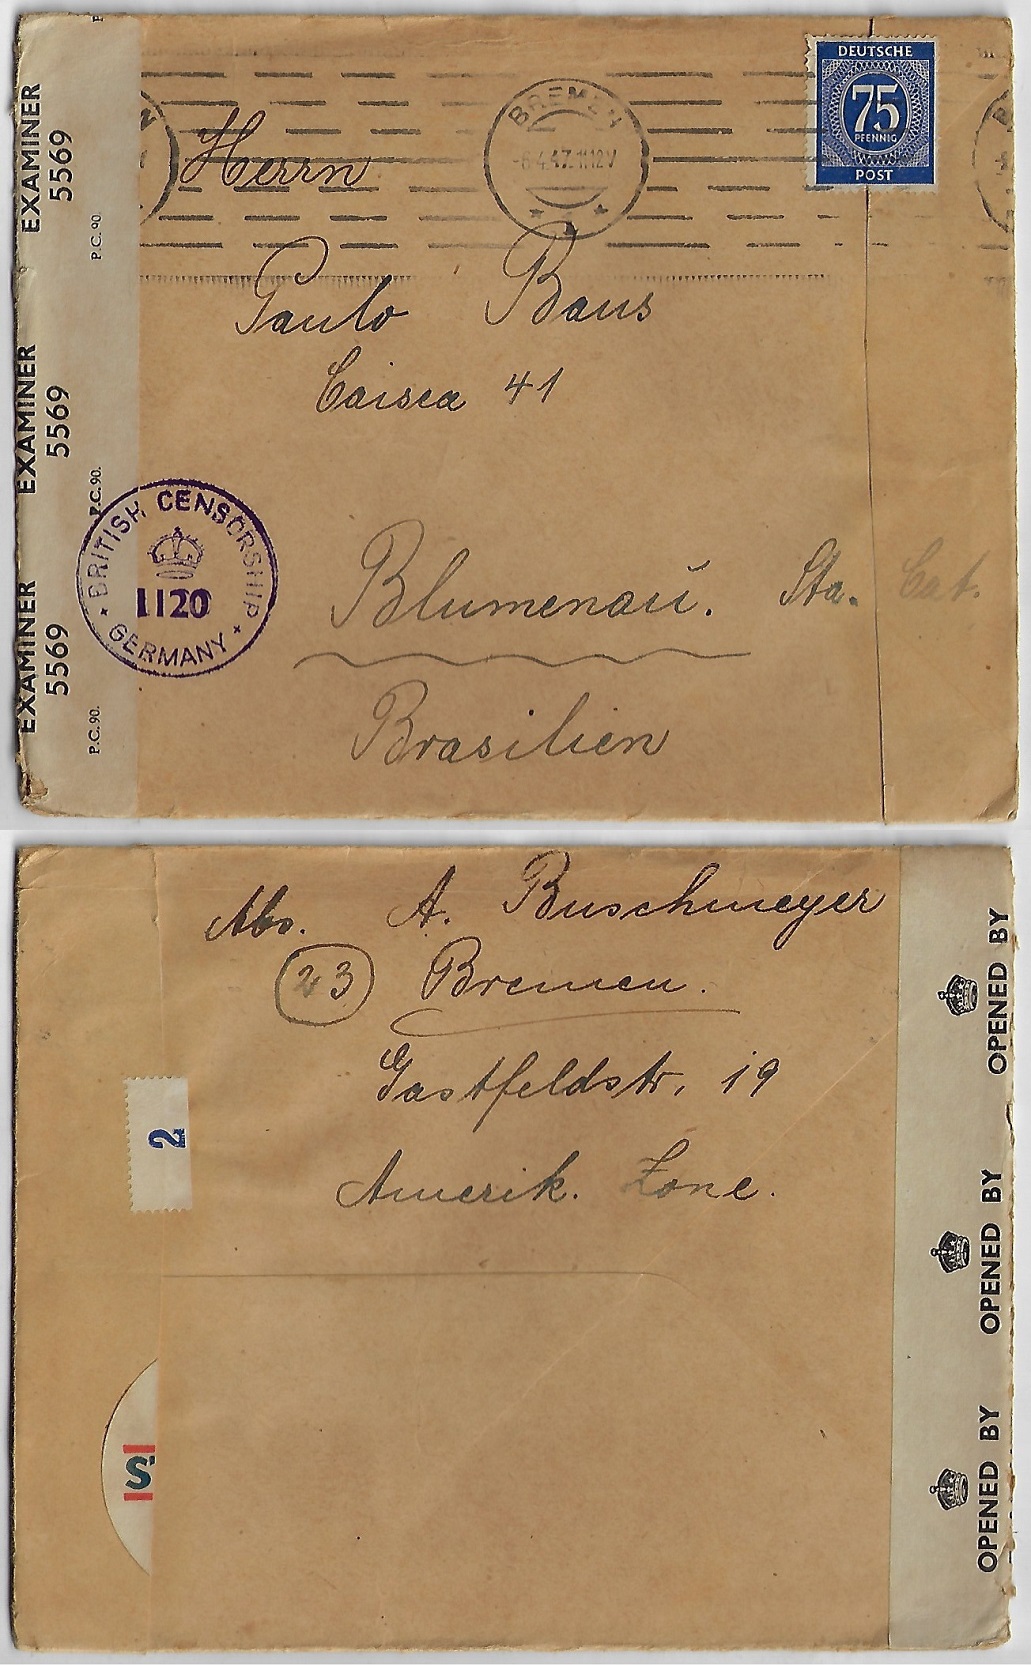 EXAMINER 5569
P.C. 90.
EXAMINER 5569
P.C. 90.
EXAMINER 5569
P.C. 90.
DEUTSCHE
75
PFENNIG
POST
BREMEN
-6.4.47.11-12V
Herrn
Paulo Baus
Caisca 41
BRITISH CENSORSHIP
1120
GERMANY
Blumenau. Sta. Cat.
Brasilien
Abs. A. Buschmeyer
(23) Bremen.
Gastfeldstr. 19
Amerik. Zone.
2
S
OPENED BY
OPENED BY
OPENED BY